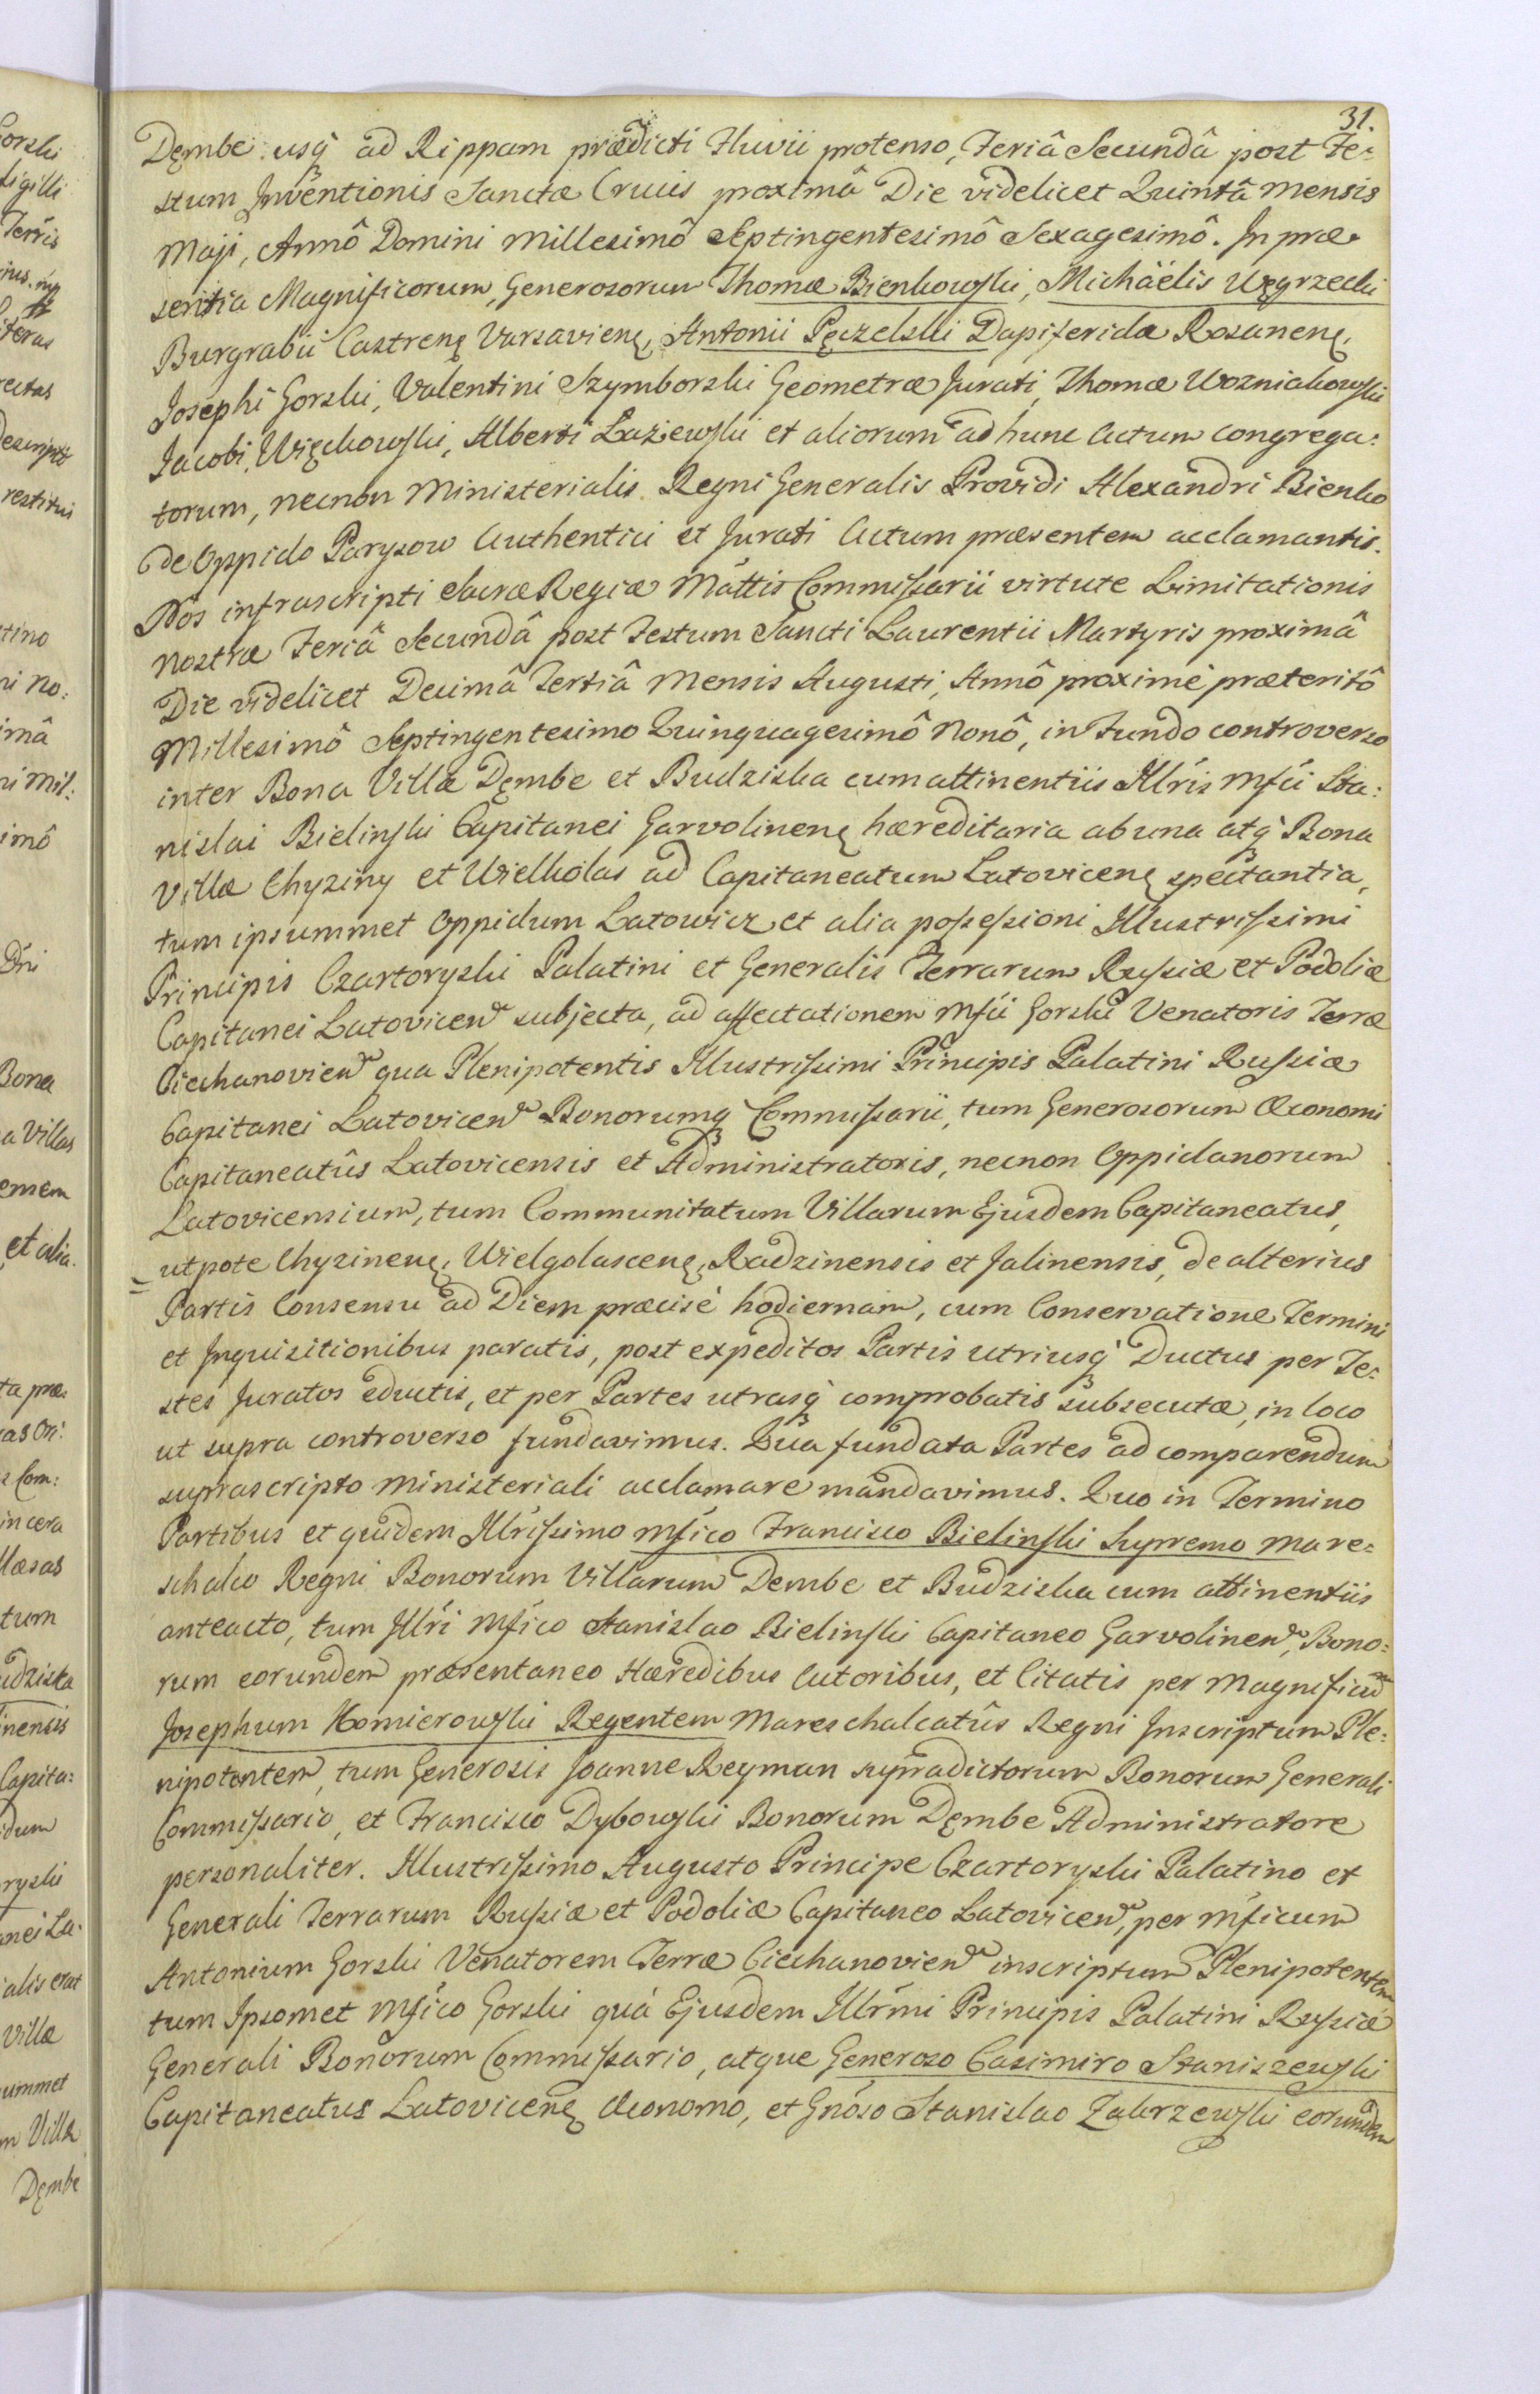 31.
Dęmbe usq́ ad Rippam prædicti Fluvii protenso, Feriâ Secundâ post Fe=
stum Inventionis Sanctæ Crucis proximâ Die videlicet Quintâ Mensis
Maji, Annô Domini Millesimô Septingentesimô Sexagesimô. In præ=
sentia Magnificorum, Generosorum Thomæ Bienkowski, Michäelis Węgrzecki
Burgrabii Castrenę Varsavienę, Antonii Pęczelski Dapiferidæ Rosanenę,
Josephi Gorski, Valentini Szymborski Geometræ Jurati, Thomæ Wozniakowski
Jacobi Więckowski, Alberti Łaziewski et aliorum ad hunc Actum congrega=
torum, necnon Ministerialis Regni Generalis Providi Alexandri Bienko
de Oppido Parysow Authentici et Jurati Actum præsentem acclamantis.
Nos infrascripti Sacræ Regiæ Mattis Commissarii virtute Limitationis
nostræ Feriâ Secundâ post Festum Sancti Laurentii Martyris proximâ
Die videlicet Decimâ Tertiâ Mensis Augusti, Annô proximè præteritô
Millesimô Septingentesimo Quinquagesimô Nonô, in Fundo controverso
inter Bona Villæ Dęmbe et Budziska cum attinentiis Illris Mfci Sta=
nislai Bielinski Capitanei Garvolinenę hæreditaria ab una atq́ Bona
Villæ Chyziny et Wielkolas ad Capitaneatum Latovicenę spectantia,
tum ipsummet Oppidum Latowicz et alia possessioni Illustrissimi
Principis Czartoryski Palatini et Generalis Terrarum Russiæ et Podoliæ
Capitanei Latovicen subjecta, ad affectationem Mfci Gorski Venatoris Terræ
Ciechanovien qua Plenipotentis Illustrissimi Principis Palatini Russiæ
Capitanei Latovicen Bonorumq Commissarii, tum Generosorum Œconomi
Capitaneatûs Latovicensis et Administratoris, necnon Oppidanorum
Latovicensium, tum Communitatum Villarum Ejusdem Capitaneatus,
utpote Chyzinenę, Wielgolascenę, Radzinensis et Jalinensis, de alterius
Partis Consensu ad Diem præcisè hodiernam, cum Conservatione Termini
et Inquisitionibus paratis, post expeditos Partis utriusq́ Ductus per Te=
stes Juratos eductis, et per Partes utrasq́ comprobatis subsecutæ, in loco
ut supra controverso fundavimus. Quâ fundata Partes ad comparendum
suprascripto Ministeriali acclamare mandavimus. Quo in Termino
Partibus et quidem Illrissimo Mfico Francisco Bielinski Supremo Mare=
schalco Regni Bonorum Villarum Dembe et Budziska cum attinentiis
anteacto, tum Illri Mfico Stanislao Bielinski Capitaneo Garvolinen, Bono=
rum eorundem præsentaneo Hæredibus Actoribus, et Citatis per Magnificum
Josephum Komierowski Regentem Mareschalcatûs Regni Inscriptum Ple=
nipotentem, tum Generosis Joanne Reyman supradictorum Bonorum Generali
Commissario, et Francisco Dybowski Bonorum Dęmbe Administratore
personaliter. Illustrissimo Augusto Principe Czartoryski Palatino et
Generali Terrarum Russiæ et Podoliæ Capitaneo Latovicen, per Mficum
Antonium Gorski Venatorem Terræ Ciechanovien inscriptum Plenipotentem
tum Ipsomet Mfico Gorski quà Ejusdem Illrmi Principis Palatini Russiæ
Generali Bonorum Commissario, atque Generoso Casimiro Staniszewski
Capitaneatus Latovicenę Œconomo, et Gnoso Stanislao Zakrzewski eorundem